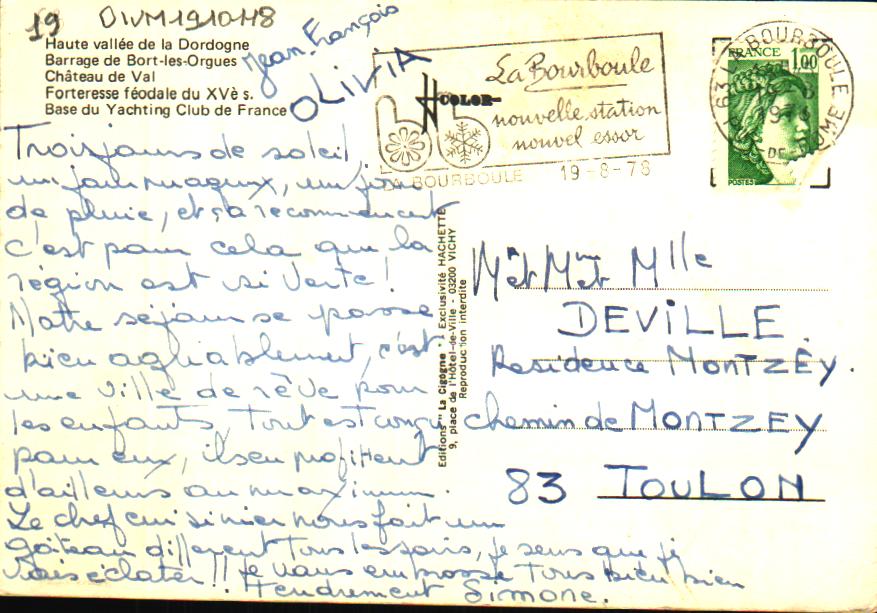 19 OIVM191048
Haute vallée de la Dordogne
Barrage de Bort-les-Orgues
Château de Val
Forteresse féodale du XVè s.
Base du Yachting Club de France
Jean François
OLIVIA
Trois jours de soleil,
un jour nuageux, un jour
de pluie, et ça recommence
c'est pour cela que la
région est si verte!
Notre séjour se passe
bien agréablement, c'est
une ville de rêve pour
les enfants, Tout est conçu
pour eux, ils en profitent
d'ailleurs au maximum.
Le chef cuisinier nous fait un
gâteau différent tous les soirs, je sens que je
vais éclater!! je vous embrasse Tous bien bien
Tendrement Simone.
COLOR
La Bourboule
nouvelle station
nouvel essor
LA BOURBOULE 19-8-78
63 LA BOURBOULE
PUY-DE-DOME
FRANCE 1,00
POSTES
Editions "La Cigogne" - Exclusivité HACHETTE
9, place de l'Hôtel-de-Ville - 03200 VICHY
Reproduction interdite
M et Mme et Mlle
DEVILLE
Residence MONTZEY.
chemin de MONTZEY
83 TOULON